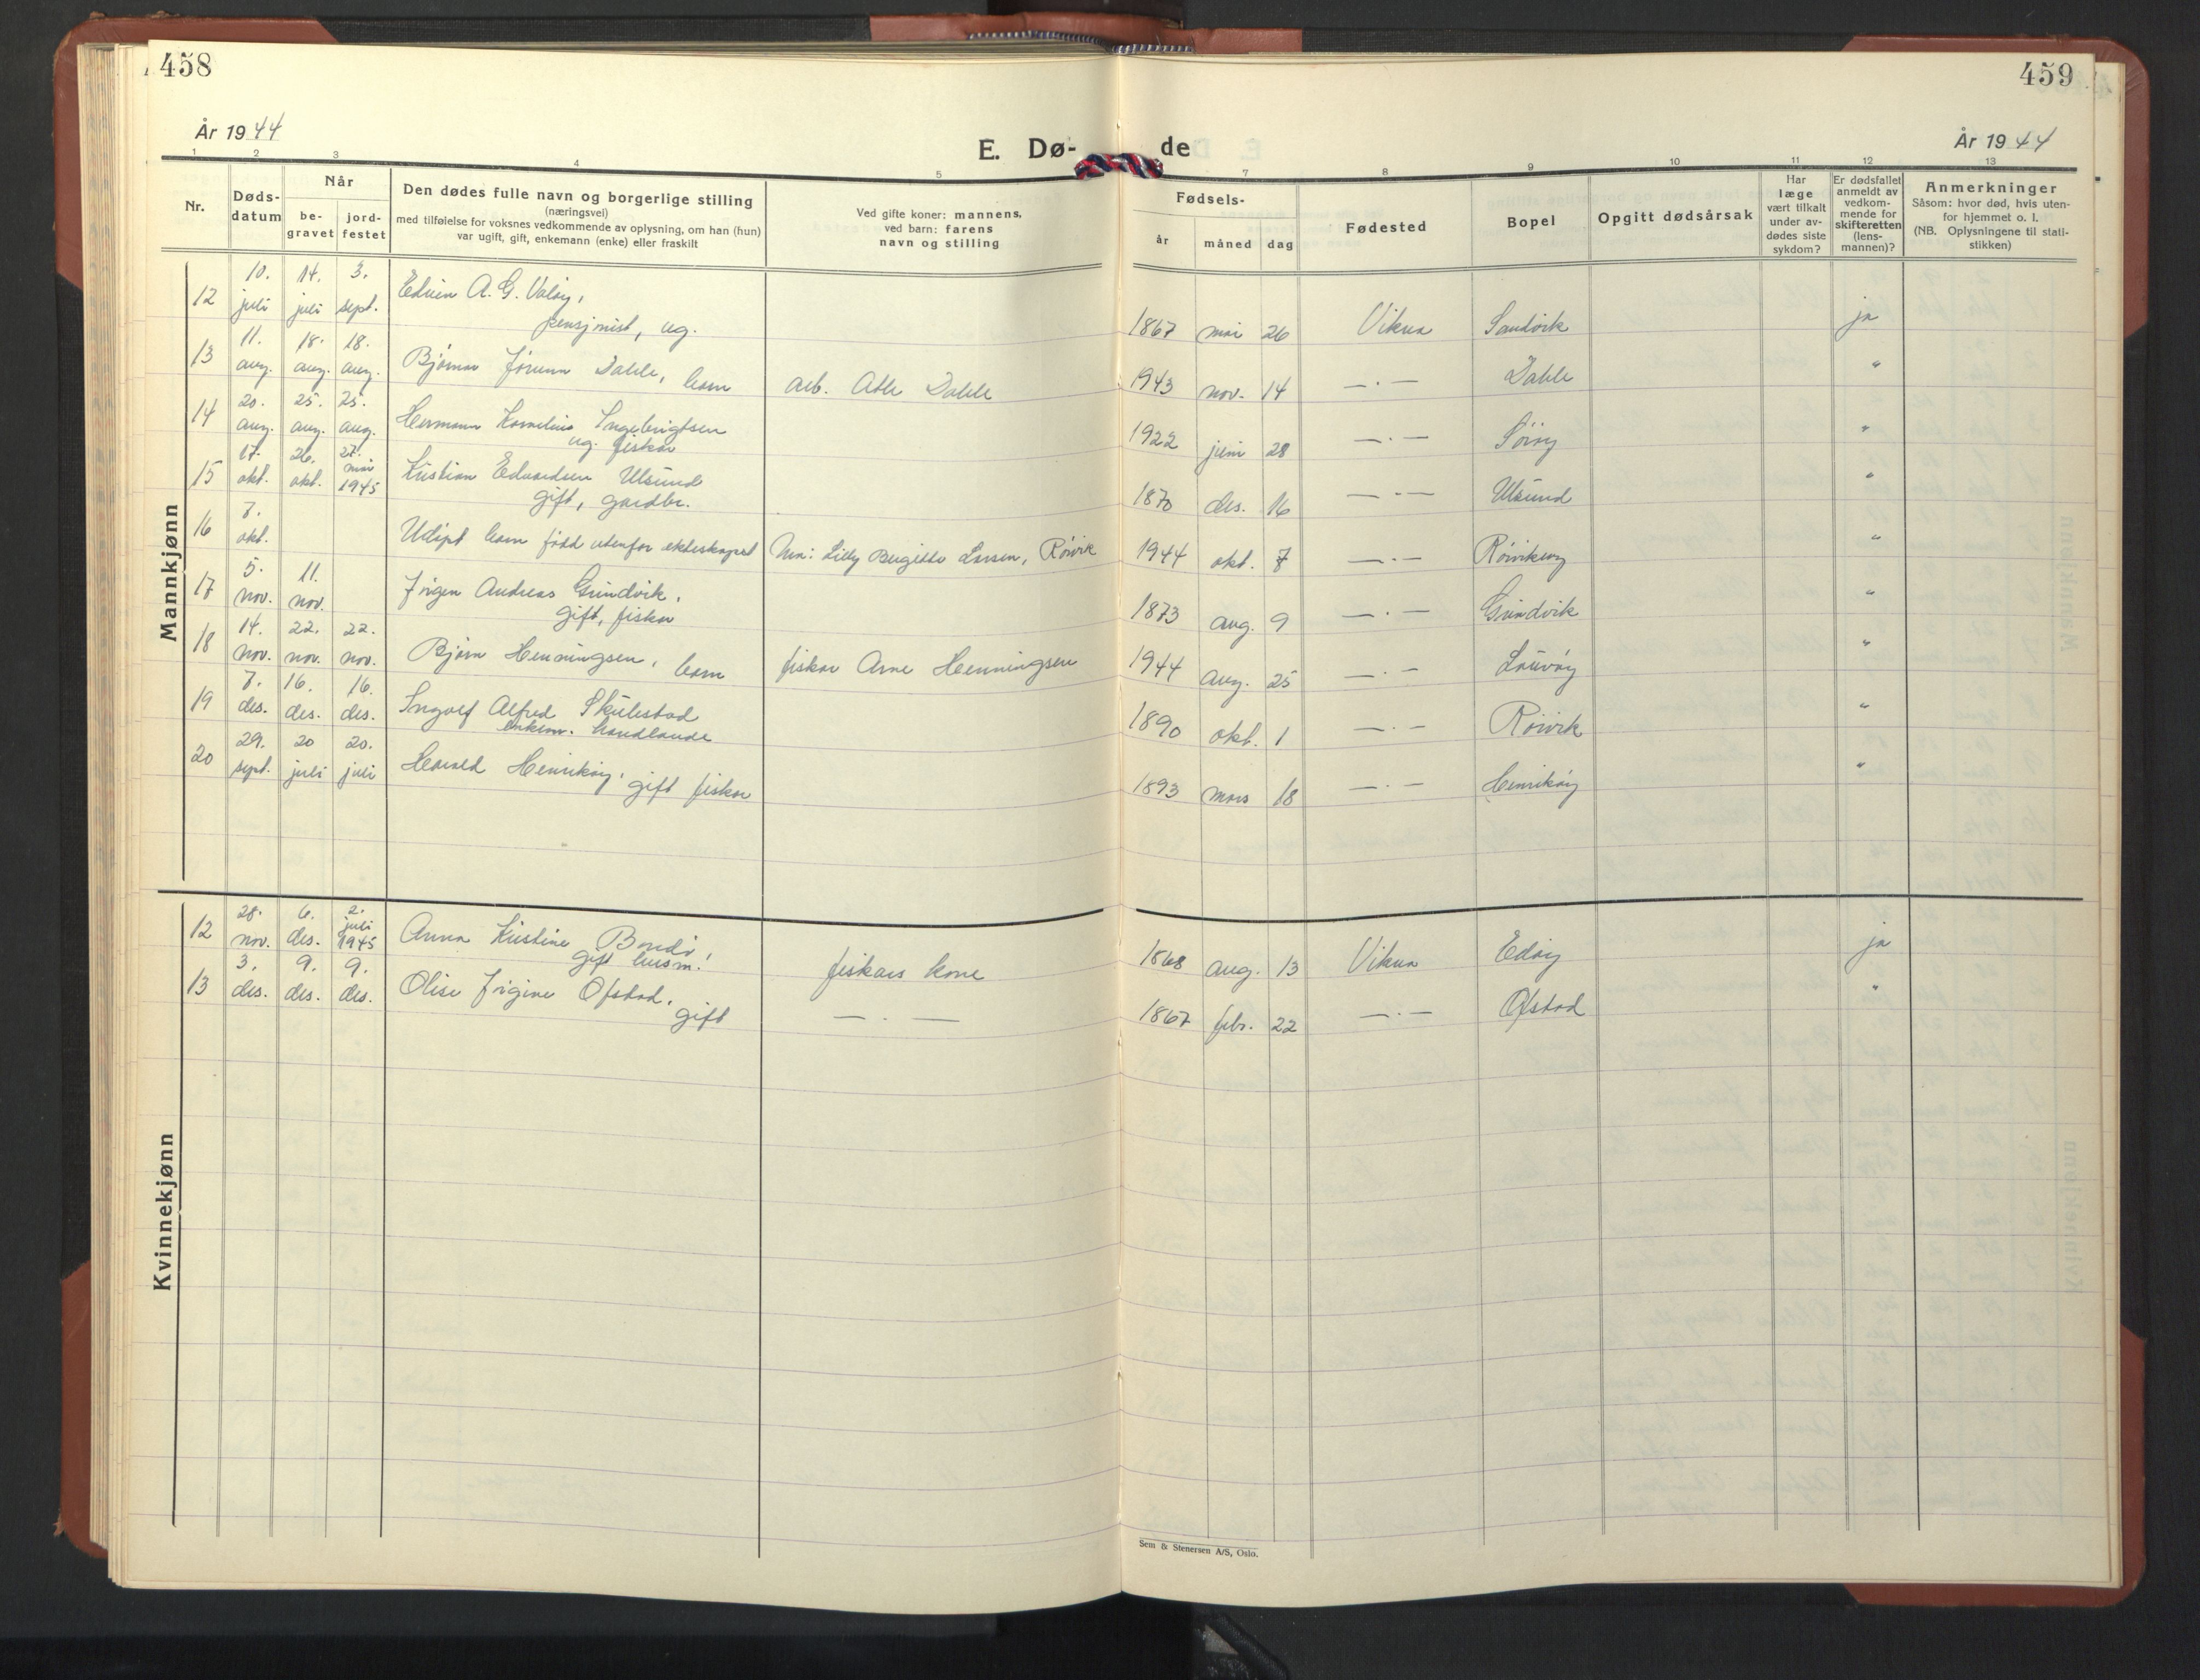 458
459
År 1944
E. Dø-
de
År 1944
1 2 3 4 5 7 8 9 10 11 12 13
Nr.
Døds-
datum
Når
be-
gravet
jord-
festet
Den dødes fulle navn og borgerlige stilling
(næringsvei)
med tilføielse for voksnes vedkommende av oplysning, om han (hun)
var ugift, gift, enkemann (enke) eller fraskilt
Ved gifte koner: mannens,
ved barn: farens
navn og stilling
Fødsels-
år måned dag
Fødested
Bopel
Opgitt dødsårsak
Har
læge
vært tilkalt
under av-
dødes siste
sykdom?
Er dødsfallet
anmeldt av
vedkom-
mende for
skifteretten
(lens-
mannen)?
Anmerkninger
Såsom: hvor død, hvis uten-
for hjemmet o. l.
(NB. Oplysningene til stati-
stikken)
Mannkjønn
12 10. juli 14. juli 3. sept. Edvin A. G. Valøy,
pensjonist, ug. 1867 mai 26 Vikna Sandvik ja
13 11. aug. 18. aug. 18. aug. Bjørnar Jørunn Dahle, barn arb. Atle Dahle 1943 nov. 14 — · — Dahle "
14 20. aug. 25. aug. 25. aug. Hermann Kornelius Ingebrigtsen
ug. fisker 1922 juni 28 — · — Sørøy "
15 17. okt. 26. okt. 27. mai 1945 Kristian Edvardsen Ulsund
gift, gardbr. 1870 des. 16 — · — Ulsund "
16 7. okt. Udøpt barn født utenfor ekteskapet Mor: Lilly Birgitte Larsen, Rørvik 1944 okt. 7 — · — "
17 5. nov. 11. nov. Jørgen Andreas Grindvik,
gift, fisker 1873 aug. 9 — · — Grindvik "
18 14. nov. 22. nov. 22. nov. Bjørn Henningsen, barn fisker Arne Henningsen 1944 aug. 25 — · — Lauvøy "
19 7. des. 16. des. 16. des. Ingolf Alfred Skulestad
enkem. handlande 1890 okt. 1 — · — Rørvik "
20 29. sept. 20 juli 20. juli Harald Henrikøy, gift fisker 1893 mars 18 — · — Henrikøy "
Kvinnekjønn
12 28. nov. 6. des. 2. juli 1945 Anna Kristine Bondø,
gift husm. fiskers kone 1868 aug. 13 Vikna Edøy ja
13 3. des. 9. des. 9. des. Olise Jørgine Ofstad,
gift — · — 1867 febr. 22 — · — Ofstad "
Sem & Stenersen A/S, Oslo.